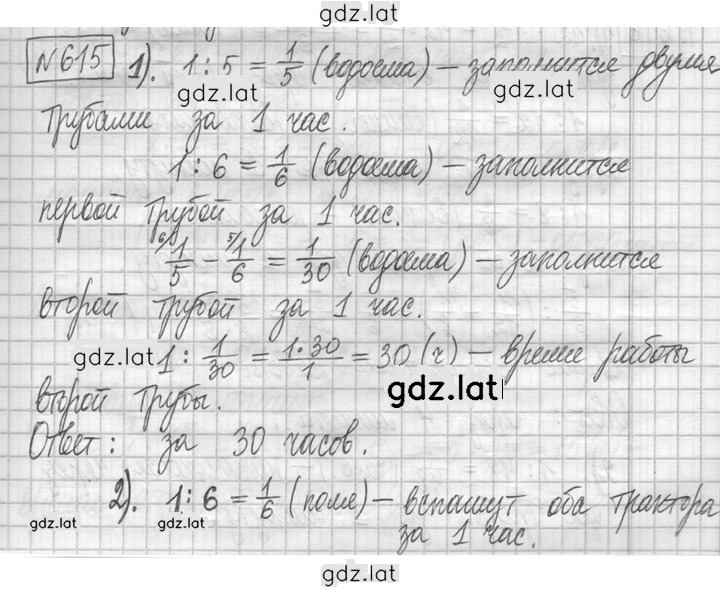 gdz.lat
№615 1). 1 : 5 = 1/5 (водоема) – заполнится двумя
gdz.lat gdz.lat
трубами за 1 час.
1 : 6 = 1/6 (водоема) – заполнится
первой трубой за 1 час.
6/ 1/5 – 5/ 1/6 = 1/30 (водоема) – заполнится
второй трубой за 1 час.
gdz.lat 1 : 1/30 = 1·30/1 = 30 (ч) – время работы
gdz.lat
второй трубы.
Ответ: за 30 часов.
2). 1 : 6 = 1/6 (поля) – вспашут оба трактора
gdz.lat gdz.lat
за 1 час.
gdz.lat